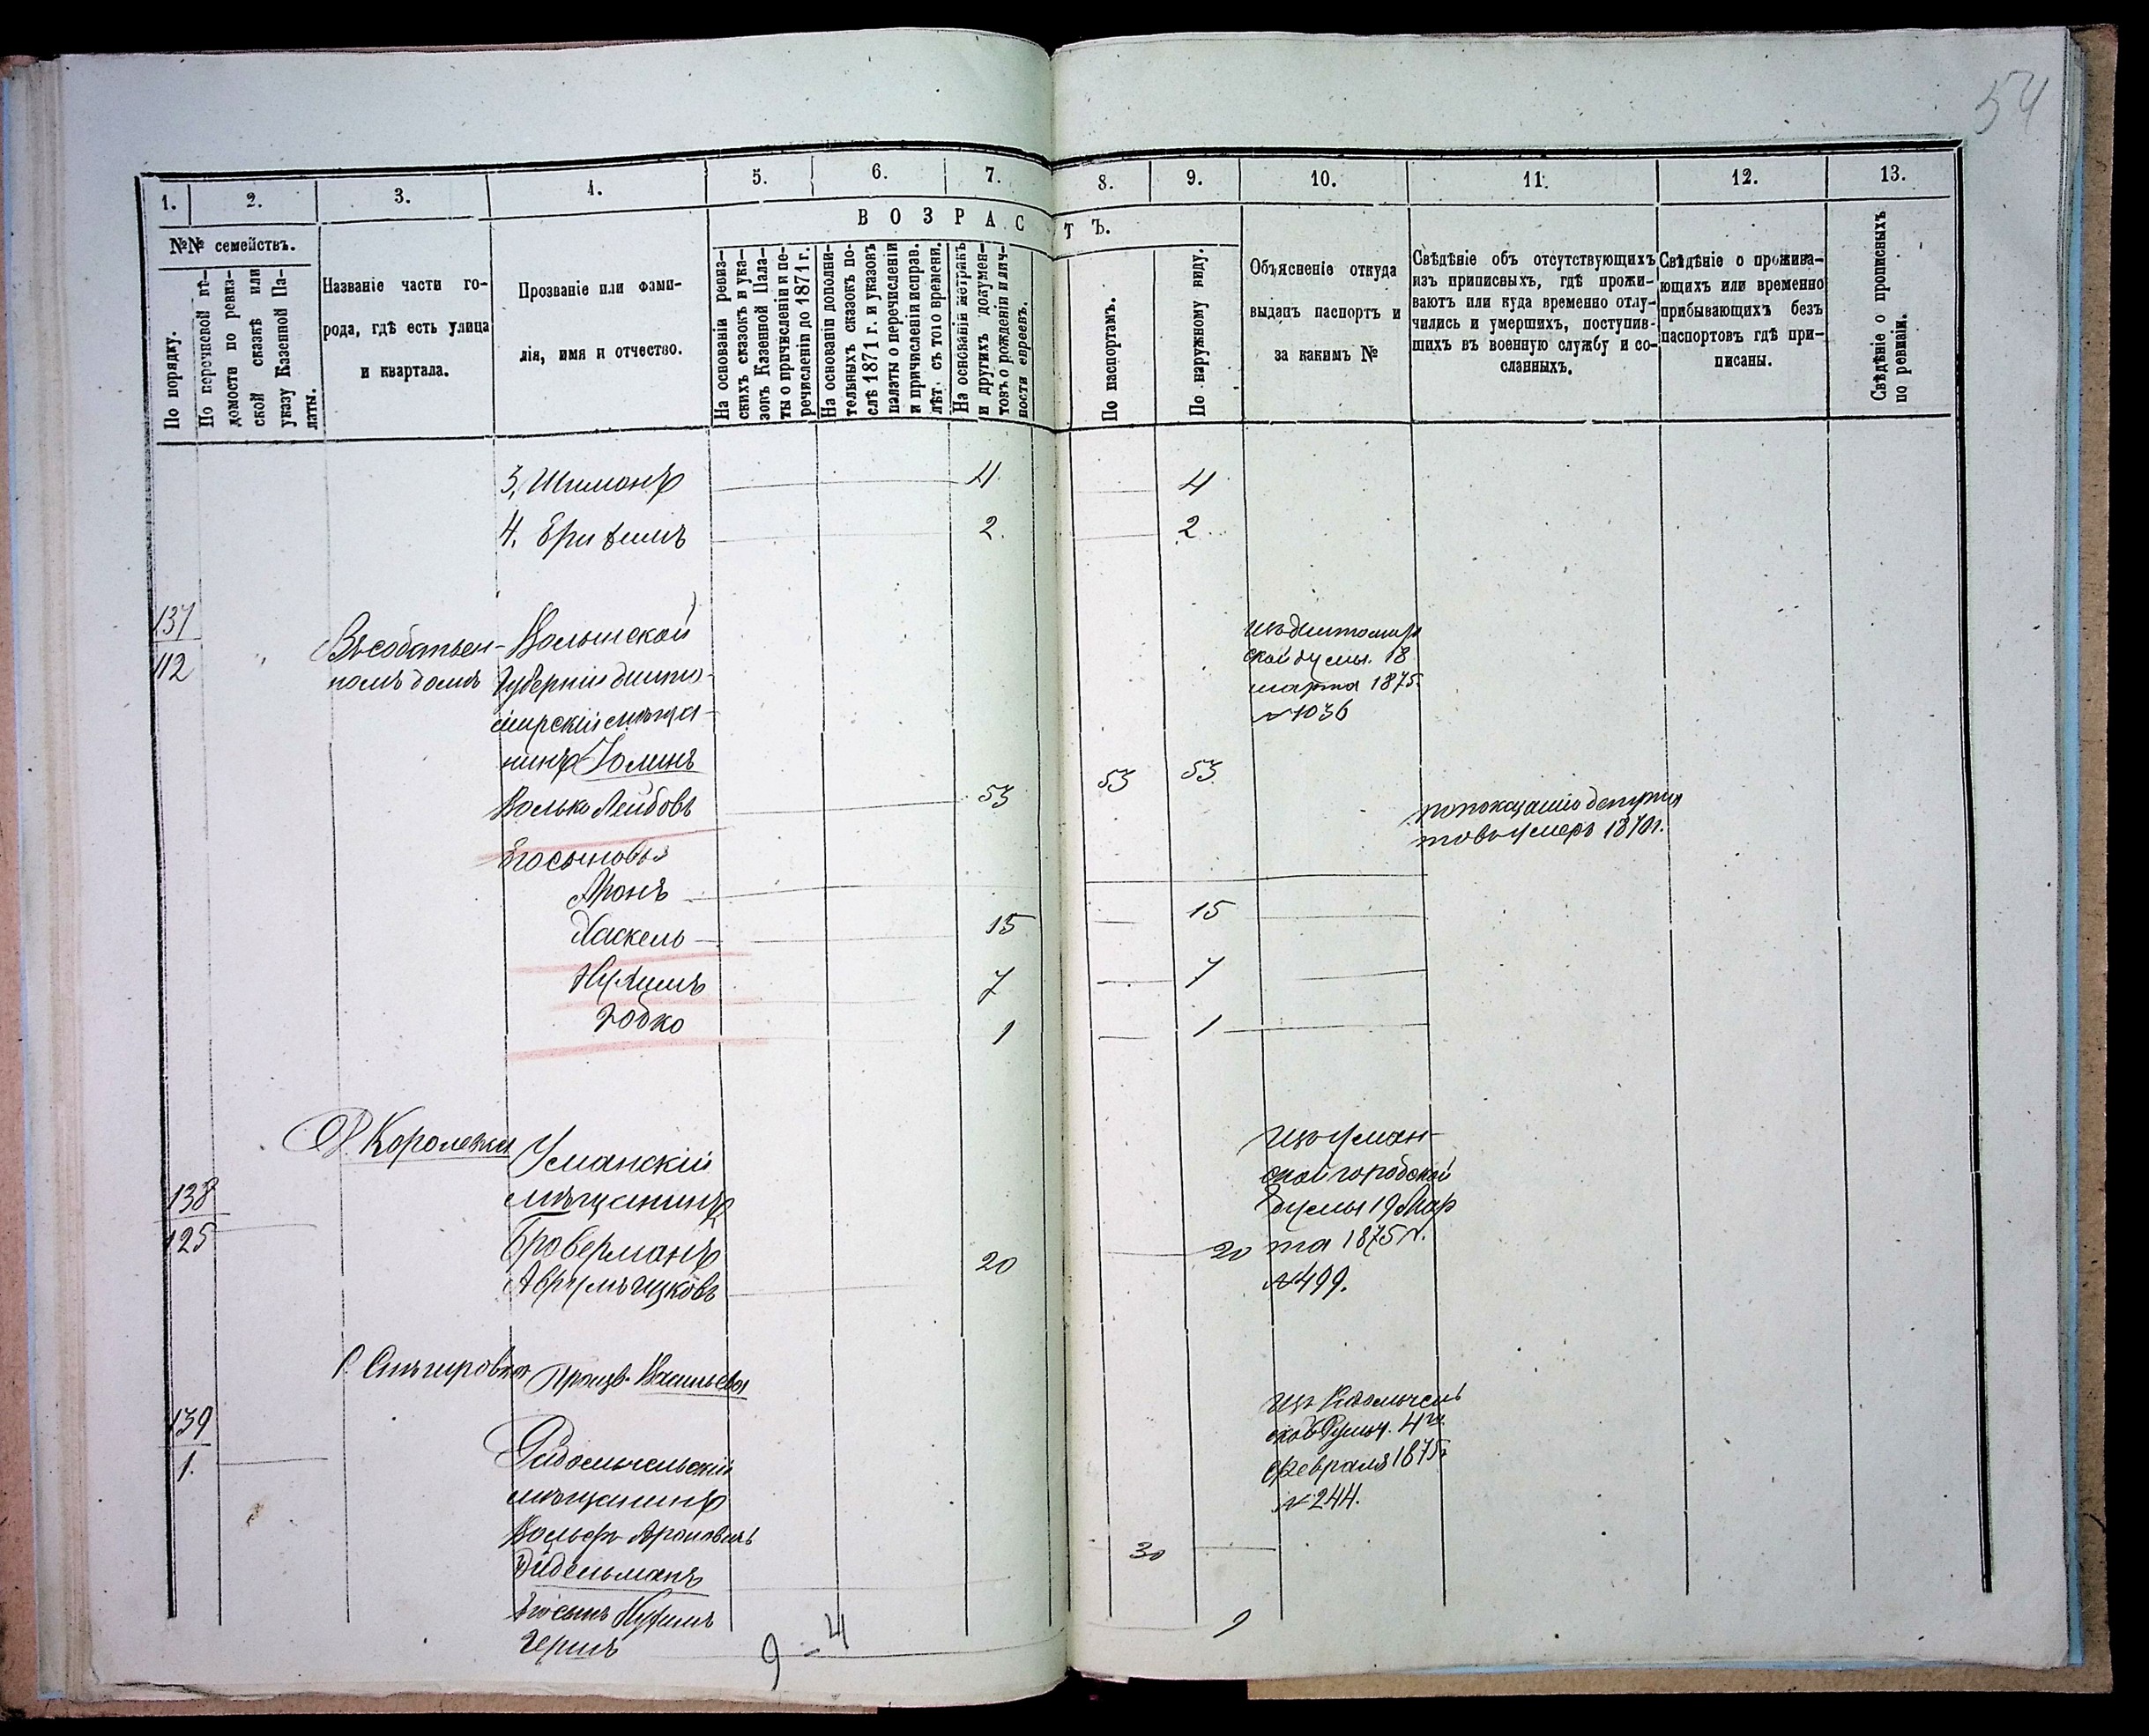 54
1. 2. 3. 4. 5. 6. 7. 8. 9. 10. 11. 12. 13.
В О З Р А С Т Ъ.
№№ семействъ.
По порядку.
По перечневой вѣ-
домости по ревиз-
ской сказкѣ или
указу Казенной Па-
латы.
Названіе части го-
рода, гдѣ есть улица
и квартала.
Прозваніе или фами-
лія, имя и отчество.
На основаніи ревиз-
скихъ сказокъ и ука-
зовъ Казенной Пала-
ты о причисленіи и пе-
речисленіи до 1871 г.
На основаніи дополни-
тельныхъ сказокъ по-
слѣ 1871 г. и указовъ
палаты о перечисленіи
и причисленіи исправ.
лѣт. съ того времени.
На основаніи метрикъ
и другихъ докумен-
товъ о рожденіи и лич-
ности евреевъ.
По паспортамъ.
По наружному виду.
Объясненіе откуда
выданъ паспортъ и
за какимъ №
Свѣдѣніе объ отсутствующихъ
изъ приписныхъ, гдѣ прожи-
ваютъ или куда временно отлу-
чились и умершихъ, поступив-
шихъ въ военную службу и со-
сланныхъ.
Свѣдѣніе о прожива-
ющихъ или временно
прибывающихъ безъ
паспортовъ гдѣ при-
писаны.
Свѣдѣніе о прописныхъ
по ревизіи.
3. Шимонъ 4 4
4. 2 2
137
112
Въ собствен-
номъ домѣ
Волынской
Губерніи Жито-
мирскій мѣща-
нинъ Юлинъ
Волько Лейбовъ 53 53 53
Его сыновья
Аронъ
Хаскель 15 15
Нухимъ 7 7
1 1
Изъ Житомир
ской думы 18
марта 1875
№ 1036
по показанію депута
товъ умеръ 1870 г.
138
125
Д. Королевки
Уманскій
мѣщанинъ
Броверманъ
Аврумъ Ицковъ 20 20
Изъ Уман-
ской городской
думы 19 Мар
та 1875 г.
№ 499.
139
1.
Радомысльскій
мѣщанинъ
Вольфъ Ароновичъ
Эйдельманъ 30
Его сынъ Нухимъ
Гершъ 9
Изъ Радомысль
ской Думы 4го
Февраля 1875
№ 244.
9 - 4